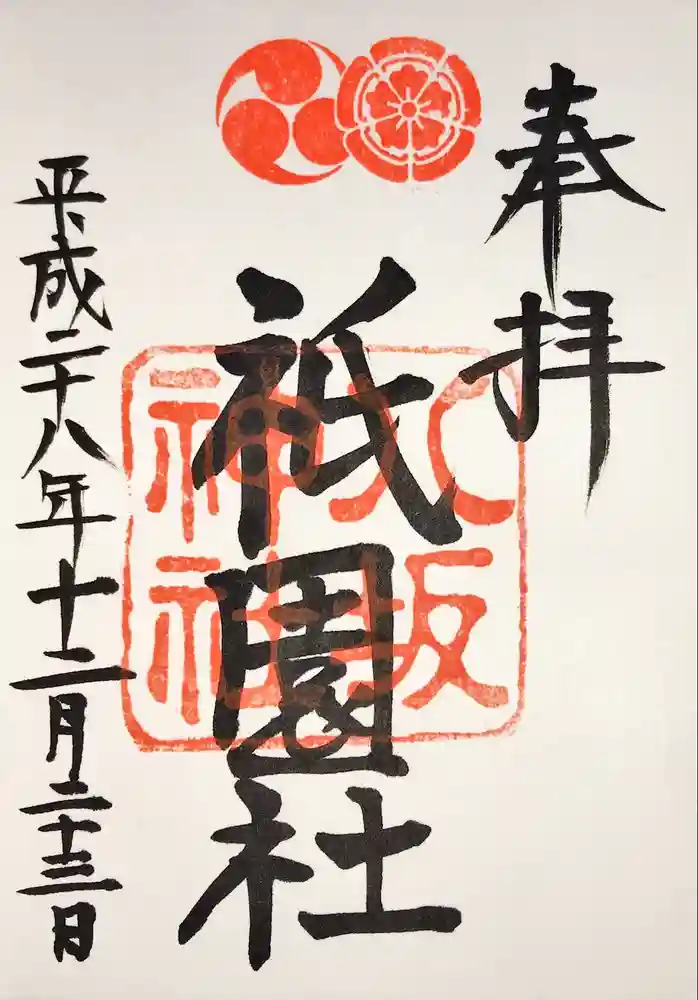 奉拝
祇園社
八坂神社
平成二十八年十二月二十三日